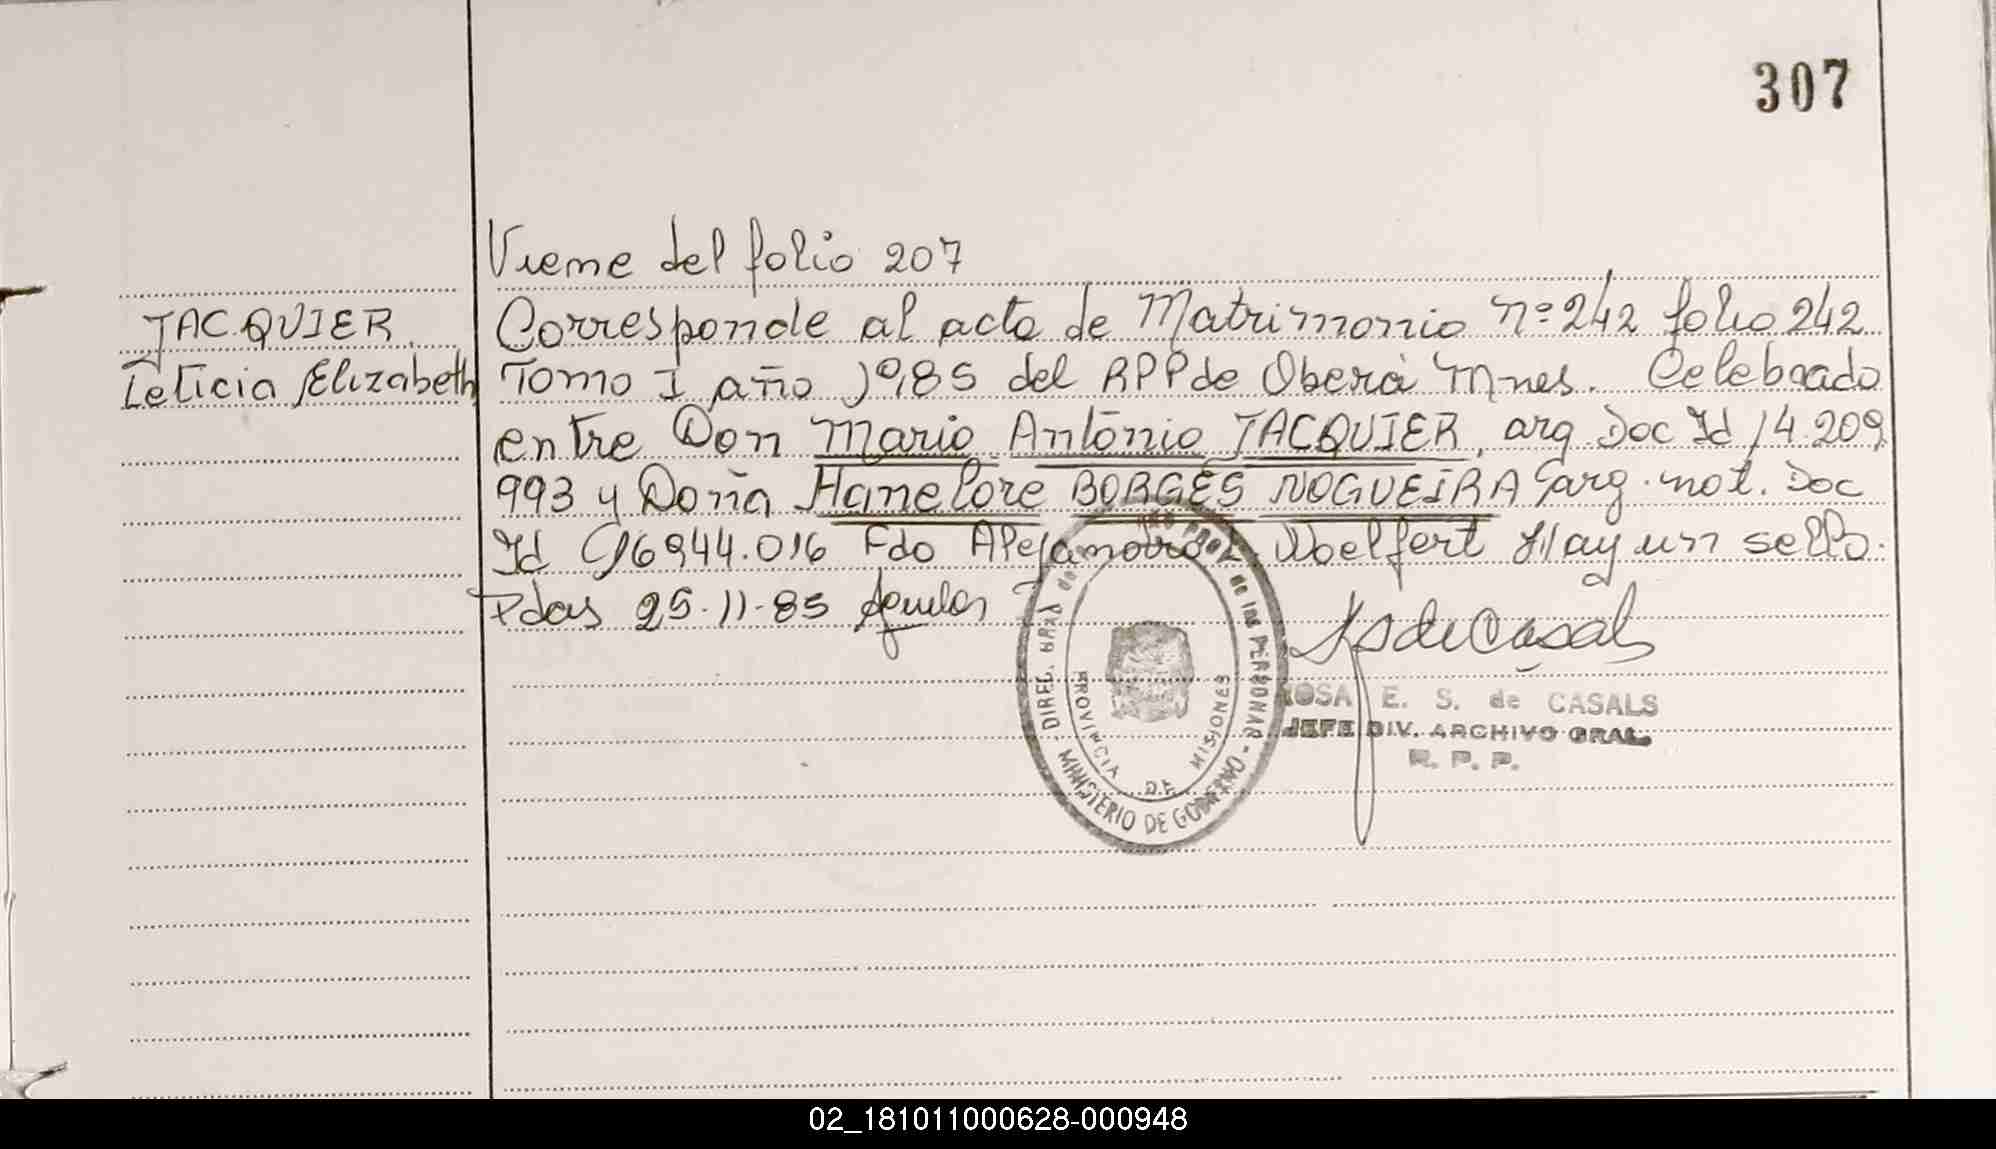 307
Viene del folio 207
JACQUIER
Leticia Elizabeth
Corresponde al acta de Matrimonio nº 242 folio 242
Tomo I año 1985 del RPP de Oberá Mnes. Celebrado
entre Don Mario Antonio JACQUIER, arg. Doc Id 14.209
993 y Doña Hanelore BORGES NOGUEIRA arg. nat. Doc
Id 16944.016 Fdo Alejandro Hay un sello.
Pdas 25-11-85
DIREC. GRAL de las PERSONAS - MINISTERIO DE GOBIERNO
PROVINCIA DE MISIONES
ROSA E. S. de CASALS
JEFE DIV. ARCHIVO GRAL.
R. P. P.
02_181011000628-000948